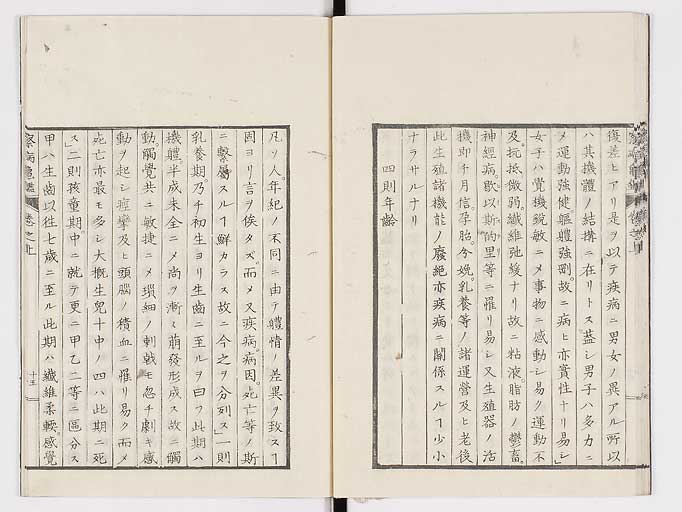 復差ヒアリ是ヲ以テ疾病ニ男女ノ異アル所以
ハ其機體ノ結搆ニ在リトス蓋シ男子ハ多力ニ
メ運動強健軀體強剛故ニ病ヒ亦實性ナリ易シ」
女子ハ覺機銳敏ニメ事物ニ感動シ易ク運動不
及抗抵微弱纖維弛緩ナリ故ニ粘液脂肪ノ鬱畜
神經病歇以斯的里等ニ罹リ易シ又生殖器ノ活
機即チ月信孕胎分娩乳養等ノ諸運營及ヒ老後
此生殖諸機能ノ廢絕亦疾病ニ關係スルヿ少小
ナラサルナリ
四則年齡
凡ソ人年紀ノ不同ニ由テ體情ノ差異ヲ致スヿ
固ヨリ言ヲ俟タズ而メ又疾病病因死亡等ノ斯
ニ繫屬スルヿ鮮カラス故ニ今之ヲ分列ス」一則
乳養期乃チ初生ヨリ生齒ニ至ルヲ曰フ此期ハ
機體半成未全ニメ尚ヲ漸々萠發形成ス故ニ觸
動觸覺共ニ敏捷ニメ瑣細ノ刺戟モ忽チ劇キ感
動ヲ起シ痙攣及ヒ頭腦ノ積血ニ罹リ易ク而メ
死亡亦最モ多シ大概生兒十中ノ四ハ此期ニ死
ス」二則孩童期中ニ就テ更ニ甲乙二等ニ區分ス
甲ハ生齒以徃七歲ニ至ル此期ハ纖維柔輭感覺
察病龜鑑 卷之上 十三